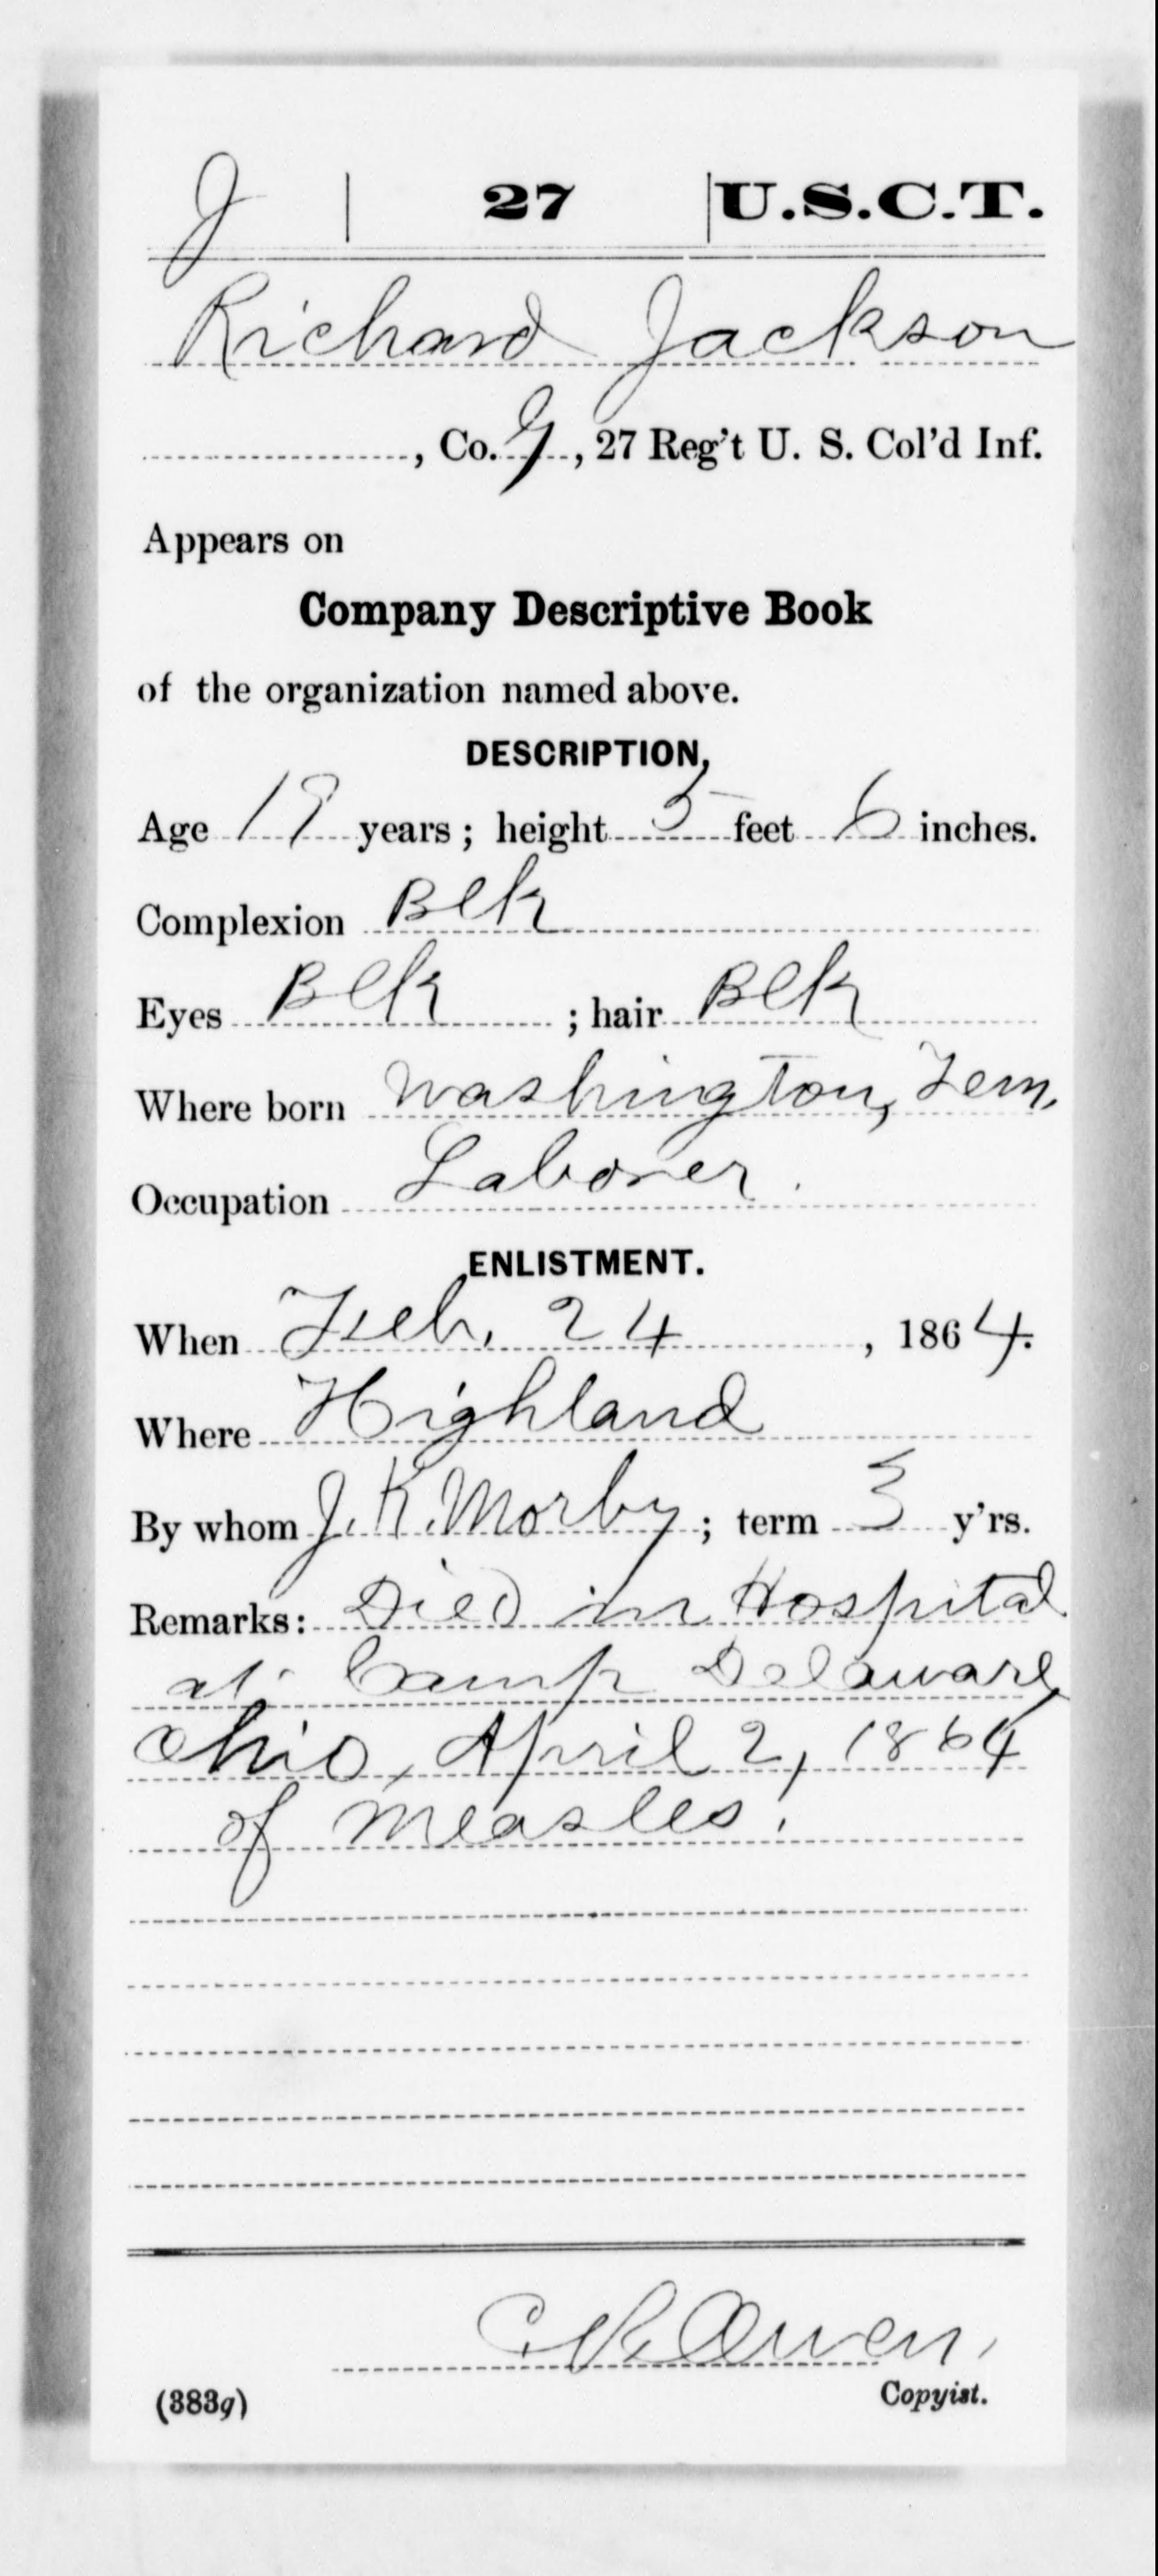 J | 27 | U.S.C.T.
Richard Jackson
, Co. G, 27 Reg't U. S. Col'd Inf.
Appears on
Company Descriptive Book
of the organization named above.
DESCRIPTION.
Age 19 years; height 5 feet 6 inches.
Complexion Blk
Eyes Blk ; hair Blk
Where born Washington, Tenn.
Occupation Laborer.
ENLISTMENT.
When Feb. 24, 1864.
Where Highland
By whom J. K. Morby; term 3 y'rs.
Remarks: Died in Hospital
at Camp Delaware,
Ohio, April 2, 1864
of measles.
Owen,
(383g) Copyist.